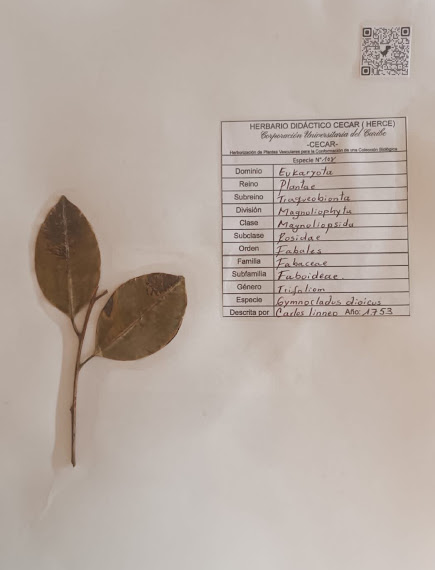 HERBARIO DIDÁCTICO CECAR ( HERCE)
Corporación Universitaria del Caribe
-CECAR-
Herborización de Plantas Vasculares para la Conformación de una Colección Biológica
Especie N°:108
Dominio Eukaryota
Reino Plantae
Subreino Traqueobionta
División Magnoliophyta
Clase Magnoliopsida
Subclase Rosidae
Orden Fabales
Familia Fabaceae
Subfamilia Faboideae.
Género Trifolium
Especie Gymnocladus dioicus
Descrita por Carlos linneo Año: 1753